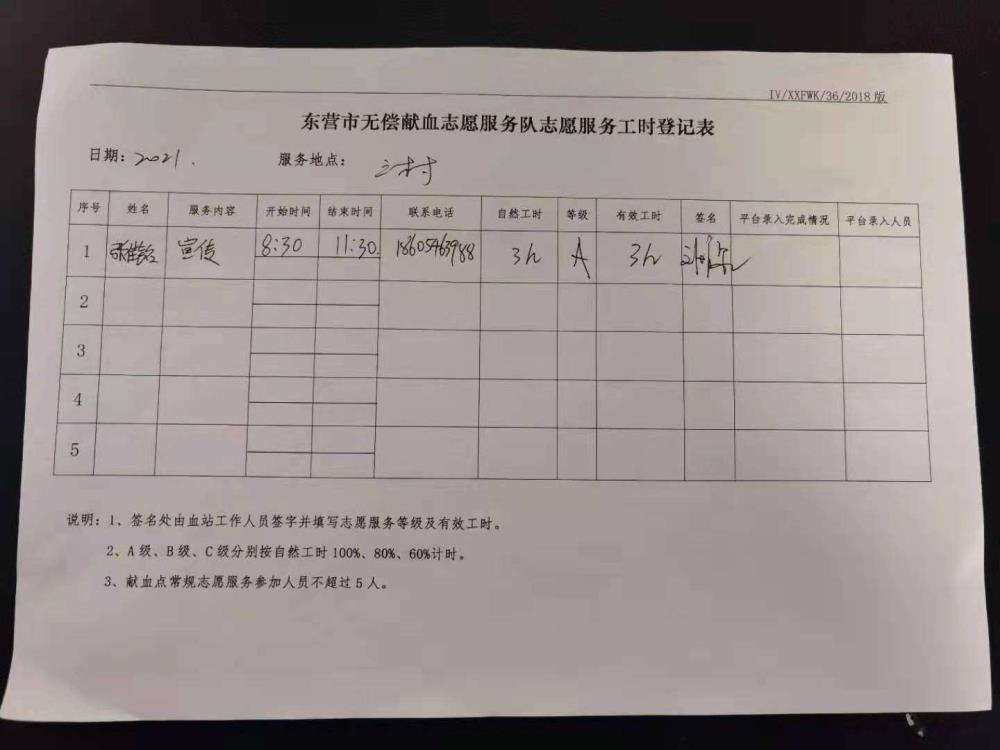 IV/XXFWK/36/2018 版
东营市无偿献血志愿服务队志愿服务工时登记表
日期：2021. 服务地点：村
序号 姓名 服务内容 开始时间 结束时间 联系电话 自然工时 等级 有效工时 签名 平台录入完成情况 平台录入人员
1 宣传 8:30 11:30 18605463988 3h A 3h
2
3
4
5
说明：1、签名处由血站工作人员签字并填写志愿服务等级及有效工时。
2、A 级、B 级、C 级分别按自然工时 100%、80%、60%计时。
3、献血点常规志愿服务参加人员不超过 5 人。